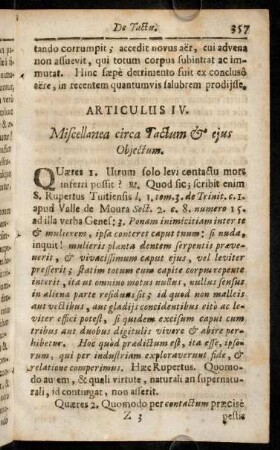 De Tactu. 357
tando corrumpit; accedit novus aër, cui advena
non assuevit, qui totum corpus subintrat ac im-
mutat. Hinc sæpè detrimento fuit ex conclusô
aëre, in recentem quantumvis salubrem prodijsse.
ARTICULUS IV.
Miscellanea circa Tactum & ejus
Objectum.
QUæres 1. Utrum solo levi contactu mors
inferri possit? ℞. Quod sic; scribit enim
S. Rupertus Tuitiensis l. 1. tom. 3. de Trinit. c. 1.
apud Valle de Moura Sect. 2. c. 8. numero 15.
ad illa verba Genes: 3. Ponam inimicitiam inter te
& mulierem, ipsa conteret caput tuum: si nuda,
inquit! mulieris planta dentem serpentis præve-
nerit, & vivacissimum caput ejus, vel leviter
presserit; statim totum cum capite corpus repente
interit, ita ut omnino motus nullus, nullus sensus
in aliena parte residuus sit; id quod non malleis
aut vectibus, aut gladijs contidentibus cito ac le-
viter effici potest, si quidem excisum caput cum
tribus aut duobus digitulis vivere & abire per-
hibetur. Hoc quòd prædictum est, ita esse, ipso-
rum, qui per industriam exploraverunt fide, &
relatione comperimus. Hæc Rupertus. Quomo-
do autem, & quali virtute, naturali an supernatu-
rali, id contingat, non asserit.
Quæres 2. Quomodo per contactum præcisè
Z 3 pestis